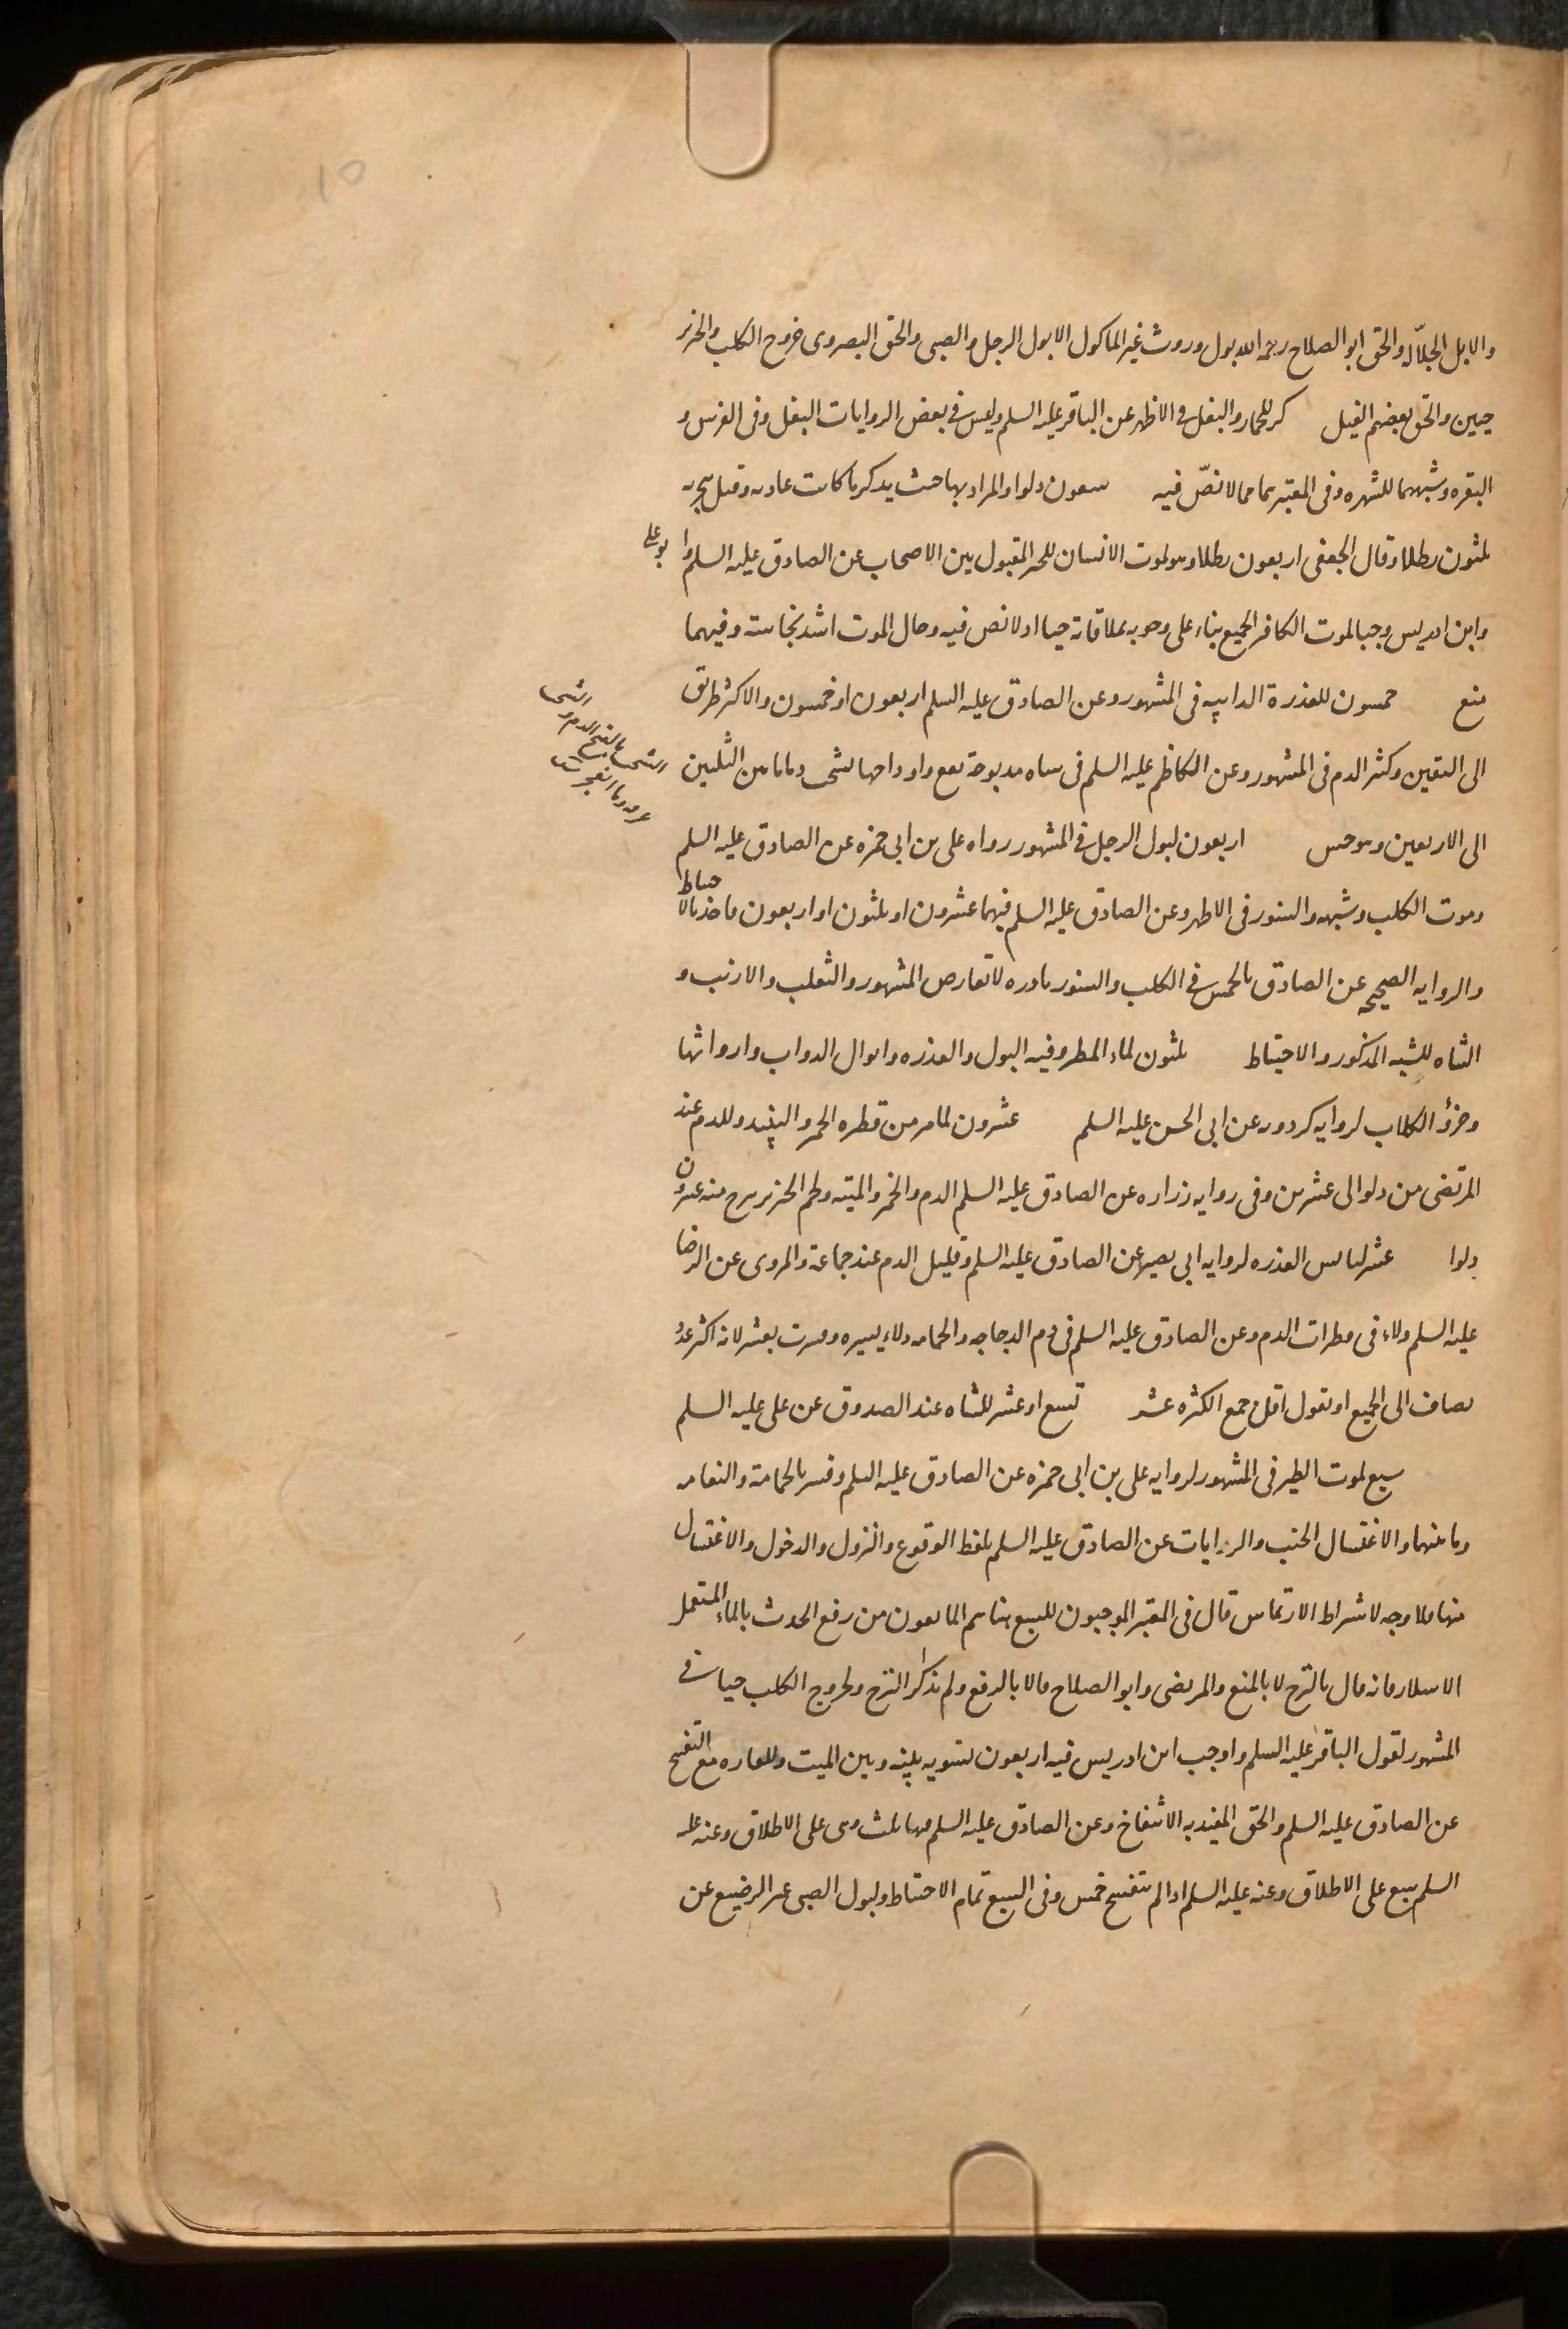 والابل الجلاّله والحق ابو الصلاح رحمه الله بول وروث غير الماكول الا بول الرجل والصبى والحق البصروى خروج الكلب والخنزير
حيين والحق بعضهم الفيل كر للحمار والبغل فى الاظهر عن الباقر عليه السلم وليس فى بعض الروايات البغل وفى الفرس و
البقره وشبههما للشهره وفى المعتبر هما مما لا نصّ فيه سبعون دلوا والمراد بها حيث يذكر ما كانت عاديه وقيل هجريه
ثلثون رطلا وقال الجعفى اربعون رطلا وهو لموت الانسان للخبر المقبول بين الاصحاب عن الصادق عليه السلم وابو على
وابن ادريس وجبا لموت الكافر الجميع بناء على وجوبه بملاقاته حيا اذ لا نص فيه وحال الموت اشد نجاسة وفيهما
منع خمسون للعذرة الدايبه فى المشهور وعن الصادق عليه السلم اربعون او خمسون والاكثر طريق
الى اليقين وكثر الدم فى المشهور وعن الكاظم عليه السلم فى شاه مذبوحة تقع واوداجها تشخب دما ما بين الثلثين
الى الاربعين وهو حسن اربعون لبول الرجل فى المشهور رواه على بن ابى حمزه عن الصادق عليه السلم
وموت الكلب وشبهه والسنور فى الاظهر وعن الصادق عليه السلم فيهما عشرون او ثلثون او اربعون فاخذ بالاحتياط
والروايه الصحيحه عن الصادق بالخمس فى الكلب والسنور نادره لا تعارض المشهور والثعلب والارنب و
الشاه للشبه المذكور والاحتياط ثلثون لماء المطر وفيه البول والعذره وابوال الدواب وارواثها
وخرؤ الكلاب لروايه كردويه عن ابى الحسن عليه السلم عشرون لما مر من قطره الخمر والنبيذ وللدم عند
المرتضى من دلو الى عشرين وفى روايه زراره عن الصادق عليه السلم الدم والخمر والميته ولحم الخنزير ينزح منه عشرون
دلوا عشر ليابس العذره لروايه ابى بصير عن الصادق عليه السلم وقليل الدم عند جماعة والمروى عن الرضا
عليه السلم دلاء فى قطرات الدم وعن الصادق عليه السلم فى دم الدجاجه والحمامه دلاء يسيره وفسرت بعشر لانه اكثر عدد
يضاف الى الجميع او نقول اقل جمع الكثره عشر تسع او عشر للشاه عند الصدوق عن على عليه السلم
سبع لموت الطير فى المشهور لروايه على بن ابى حمزه عن الصادق عليه السلم وفسر بالحمامة والنعامه
وما بينهما والاغتسال الجنب والروايات عن الصادق عليه السلم بلفظ الوقوع والنزول والدخول والاغتسال
منها فلا وجه لاشراط الارتماس قال فى المعتبر الموجبون للسبع هنا هم المانعون من رفع الحدث بالماء المستعمل
الا سلار فانه قال بالنزح لا بالمنع والمرتضى وابو الصلاح قالا بالرفع ولم يذكرا النزح ولخروج الكلب حيا فى
المشهور لقول الباقر عليه السلم واوجب ابن ادريس فيه اربعون تسويه بينه وبين الميت وللفاره مع التفسخ
عن الصادق عليه السلم والحق المفيد به الانتفاخ وعن الصادق عليه السلم فيها ثلث وهى على الاطلاق وعنه عليه
السلم سبع على الاطلاق وعنه عليه السلم اذا لم تتفسخ خمس وفى السبع تمام الاحتياط ولبول الصبى غير الرضيع عن